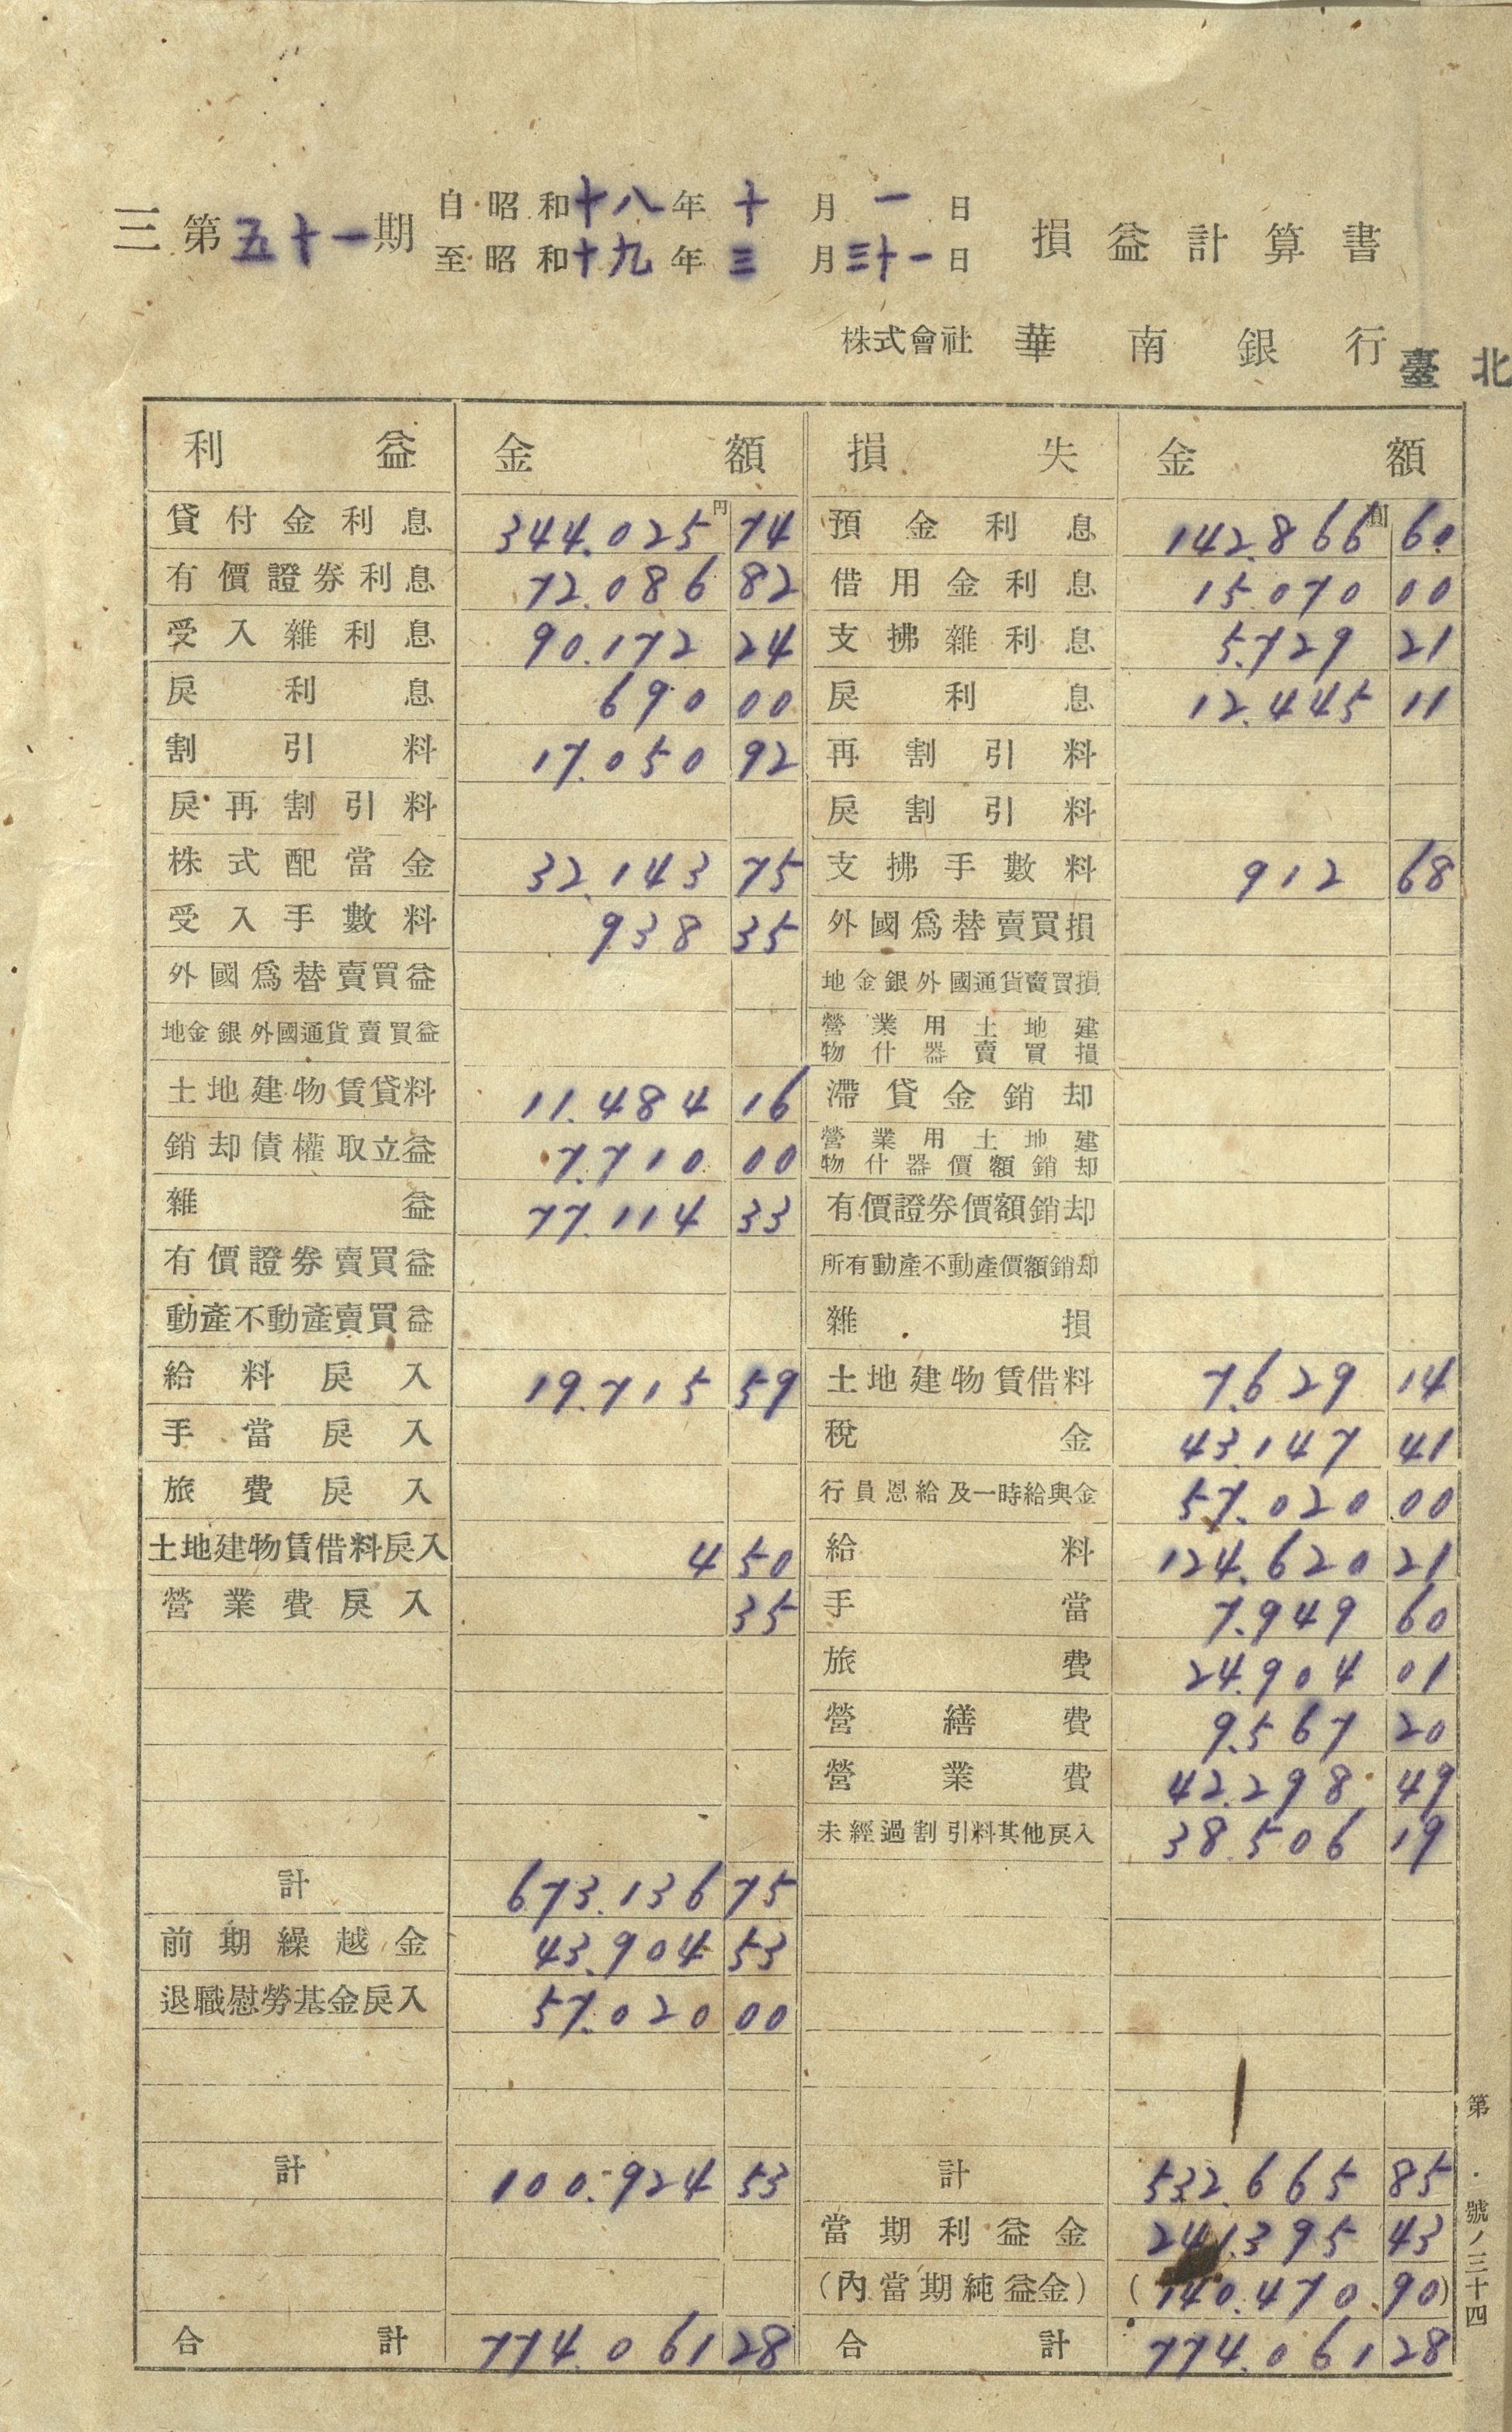 三 第五十一期 自昭和十八年十月一日 損益計算書
至昭和十九年三月三十一日
株式會社 華南銀行 臺北
利益 金額 損失 金額
貸付金利息 344.025円 74 預金利息 142.866圓 60
有價證券利息 72.086 82 借用金利息 15.070 00
受入雜利息 90.172 24 支拂雜利息 5.729 21
戾利息 690 00 戾利息 12.445 11
割引料 17.050 92 再割引料
戾再割引料 戾割引料
株式配當金 32.143 75 支拂手數料 912 68
受入手數料 938 35 外國爲替賣買損
外國爲替賣買益 地金銀外國通貨賣買損
地金銀外國通貨賣買益 營業用土地建物什器賣買損
土地建物賃貸料 11.484 16 滯貸金銷却
銷却債權取立益 7.710 00 營業用土地建物什器價額銷却
雜益 77.114 33 有價證券價額銷却
有價證券賣買益 所有動產不動產價額銷却
動產不動產賣買益 雜損
給料戾入 19.715 59 土地建物賃借料 7.629 14
手當戾入 稅金 43.147 41
旅費戾入 行員恩給及一時給與金 57.020 00
土地建物賃借料戾入 4 50 給料 124.620 21
營業費戾入 35 手當 7.949 60
旅費 24.904 01
營繕費 9.567 20
營業費 42.298 49
未經過割引料其他戾入 38.506 19
計 673.136 75
前期繰越金 43.904 53
退職慰勞基金戾入 57.020 00
計 100.924 53 計 532.665 85
當期利益金 241.395 43
(內當期純益金) (140.470.90)
合計 774.061 28 合計 774.061 28
第 . 號ノ三十四